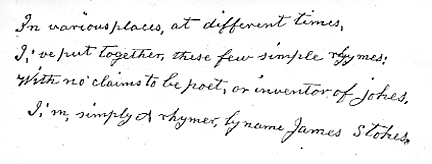 In various places, at different times,
I,'ve put together, these few simple rhymes:
With no claims to be poet, or inventor of jokes,
I,'m, simply A rhymer, by name James Stokes.